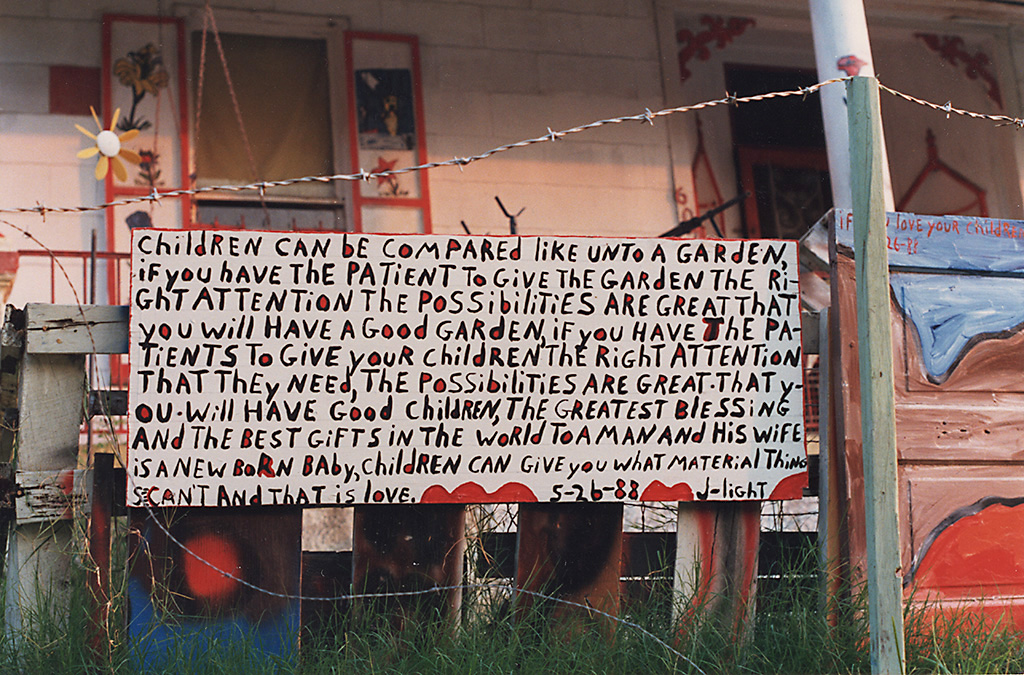 CHildREN CAN bE COMPAREd liKE UNTO A GARdEN,
if you HAVE THE PATiENT To GiVE THE GARdEN THE Ri-
GHT ATTENTiON THE POSSibiLiTiES ARE GREAT THAT
you Will HAVE A Good GARDEN, if you HAVE THE PA-
TiENTS To GiVE youR CHildREN THE RiGHT ATTENTiON
THAT THEy NEEd, THE POSSibiliTiES ARE GREAT-THAT y-
OU-Will HAVE Good CHildREN, THE GREATEST BlESSiNG
ANd THE BEST GiFTS iN THE WORld TO A MAN ANd HiS WiFE
iS A NEW BORN BAby, CHildREN CAN GiVE you WHAT MATERiAl THiNG
S CAN'T ANd THAT iS lOVE. 5-26-88 J-liGHT
iF you lOVE youR CHildREN
26-88